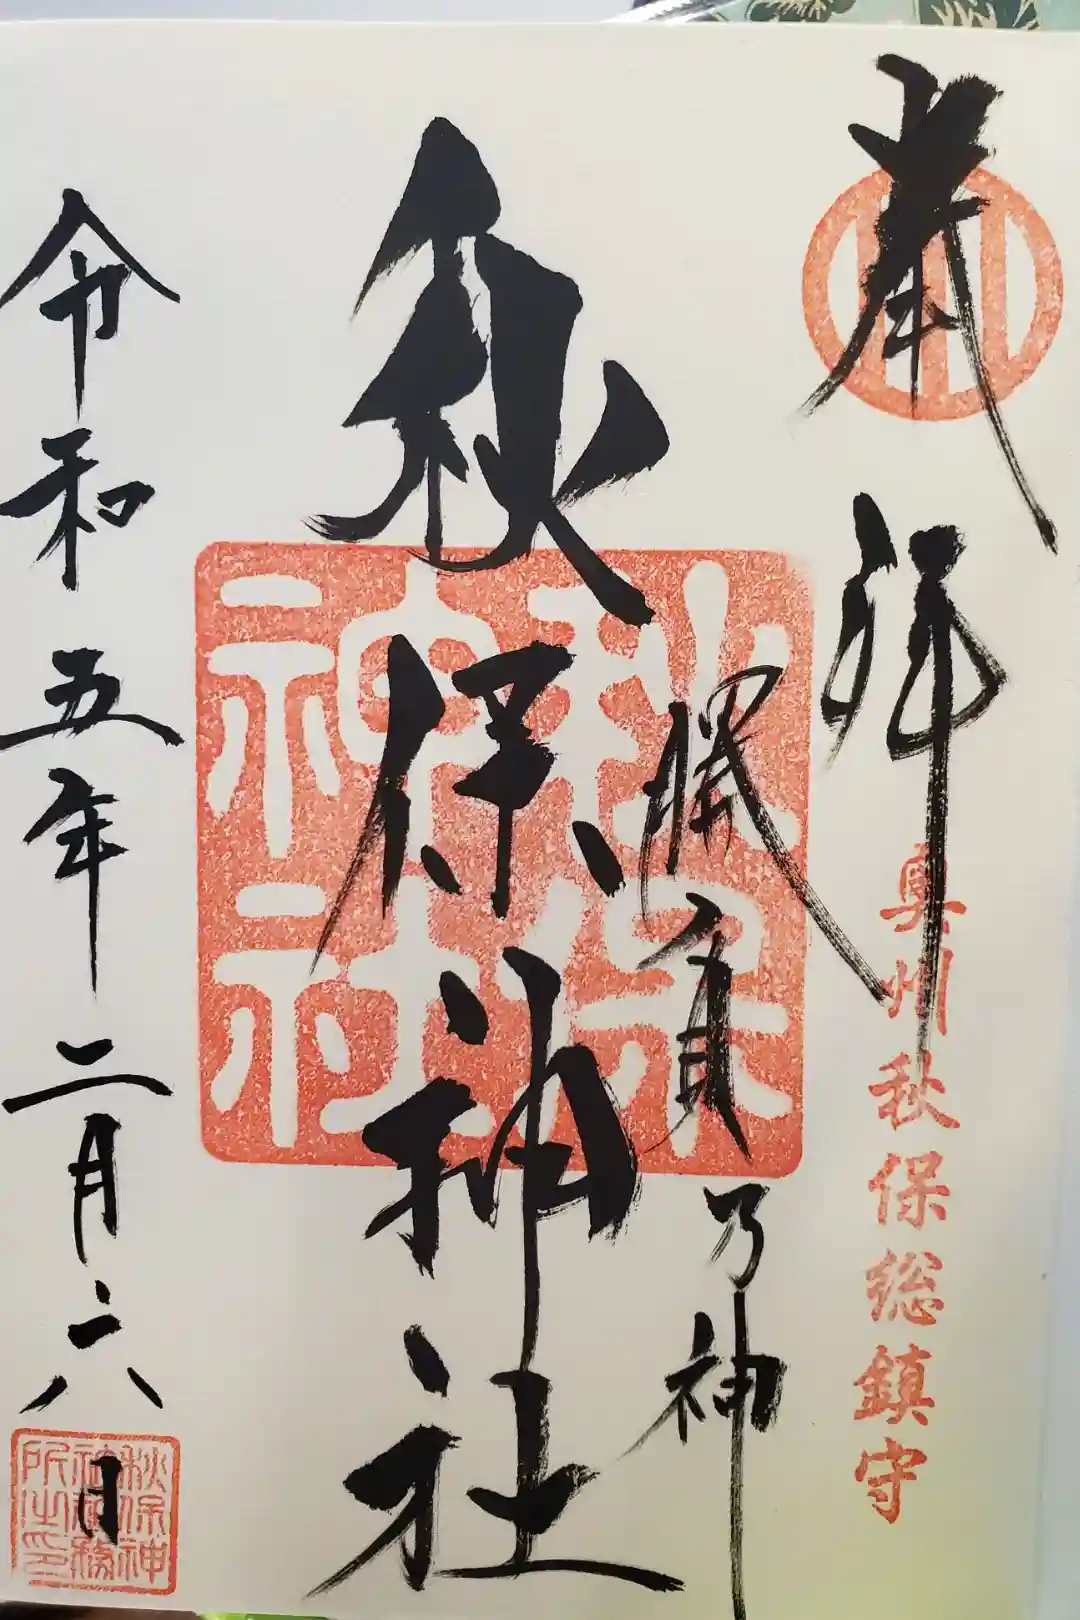 奉拝
奥州秋保総鎮守
勝負乃神
秋保神社
秋保
神社
令和五年二月六日
秋保神
社社務
所之印